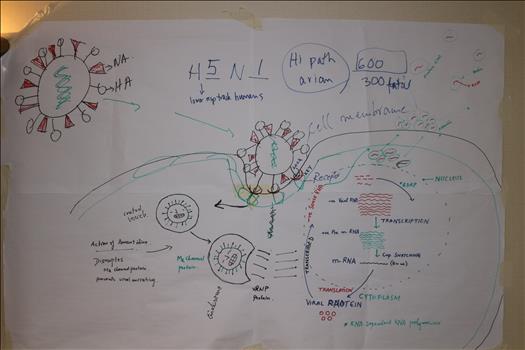 NA
HA
H5N1
lower resp track humans
Hi path
avian
600
300 fatal
Cell membrane
Receptor
NUCLEUS
-ve Viral RNA
TRANSCRIPTION
+ve
m RNA
Cap SNATCHING
TRANSLATION
VIRAL PROTEIN
CYTOPLASM
* RNA dependent RNA polymerase
coated
vesicle
Action of Amantadine
Disrupts
M2 channel protein
prevents viral uncoating
M2 channel
protein
endosome
vRNP
Protein